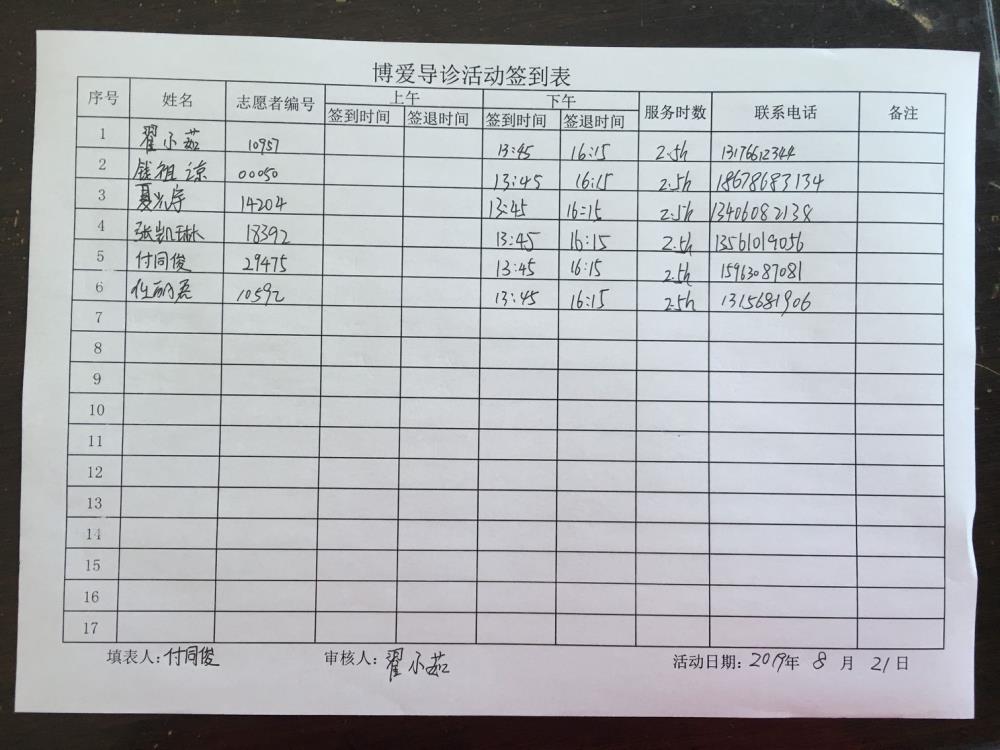 博爱导诊活动签到表
序号 姓名 志愿者编号 上午 下午 服务时数 联系电话 备注
签到时间 签退时间 签到时间 签退时间
1 翟小茹 10957 13:45 16:15 2.5h 13176612344
2 钱祖谅 00050 13:45 16:15 2.5h 18678683134
3 14204 13:45 16:15 2.5h 13406082138
4 张凯琳 18392 13:45 16:15 2.5h 13561019056
5 付同俊 29475 13:45 16:15 2.5h 15963087081
6 10592 13:45 16:15 2.5h 1315681906
7
8
9
10
11
12
13
14
15
16
17
填表人:付同俊 审核人:翟小茹 活动日期:2019年 8 月 21日